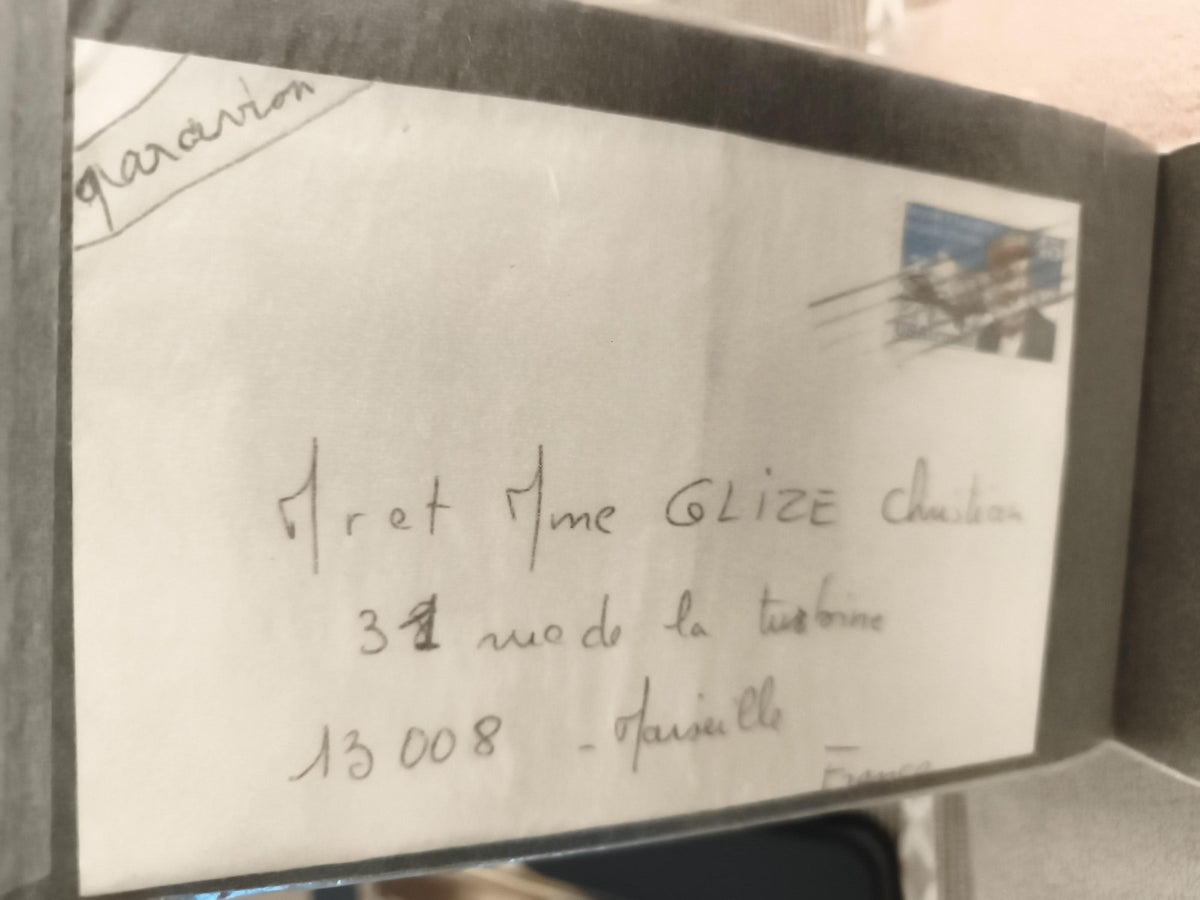 par avion
Mr et Mme GLIZE Christian
31 rue de la turbine
13 008 - Marseille
France